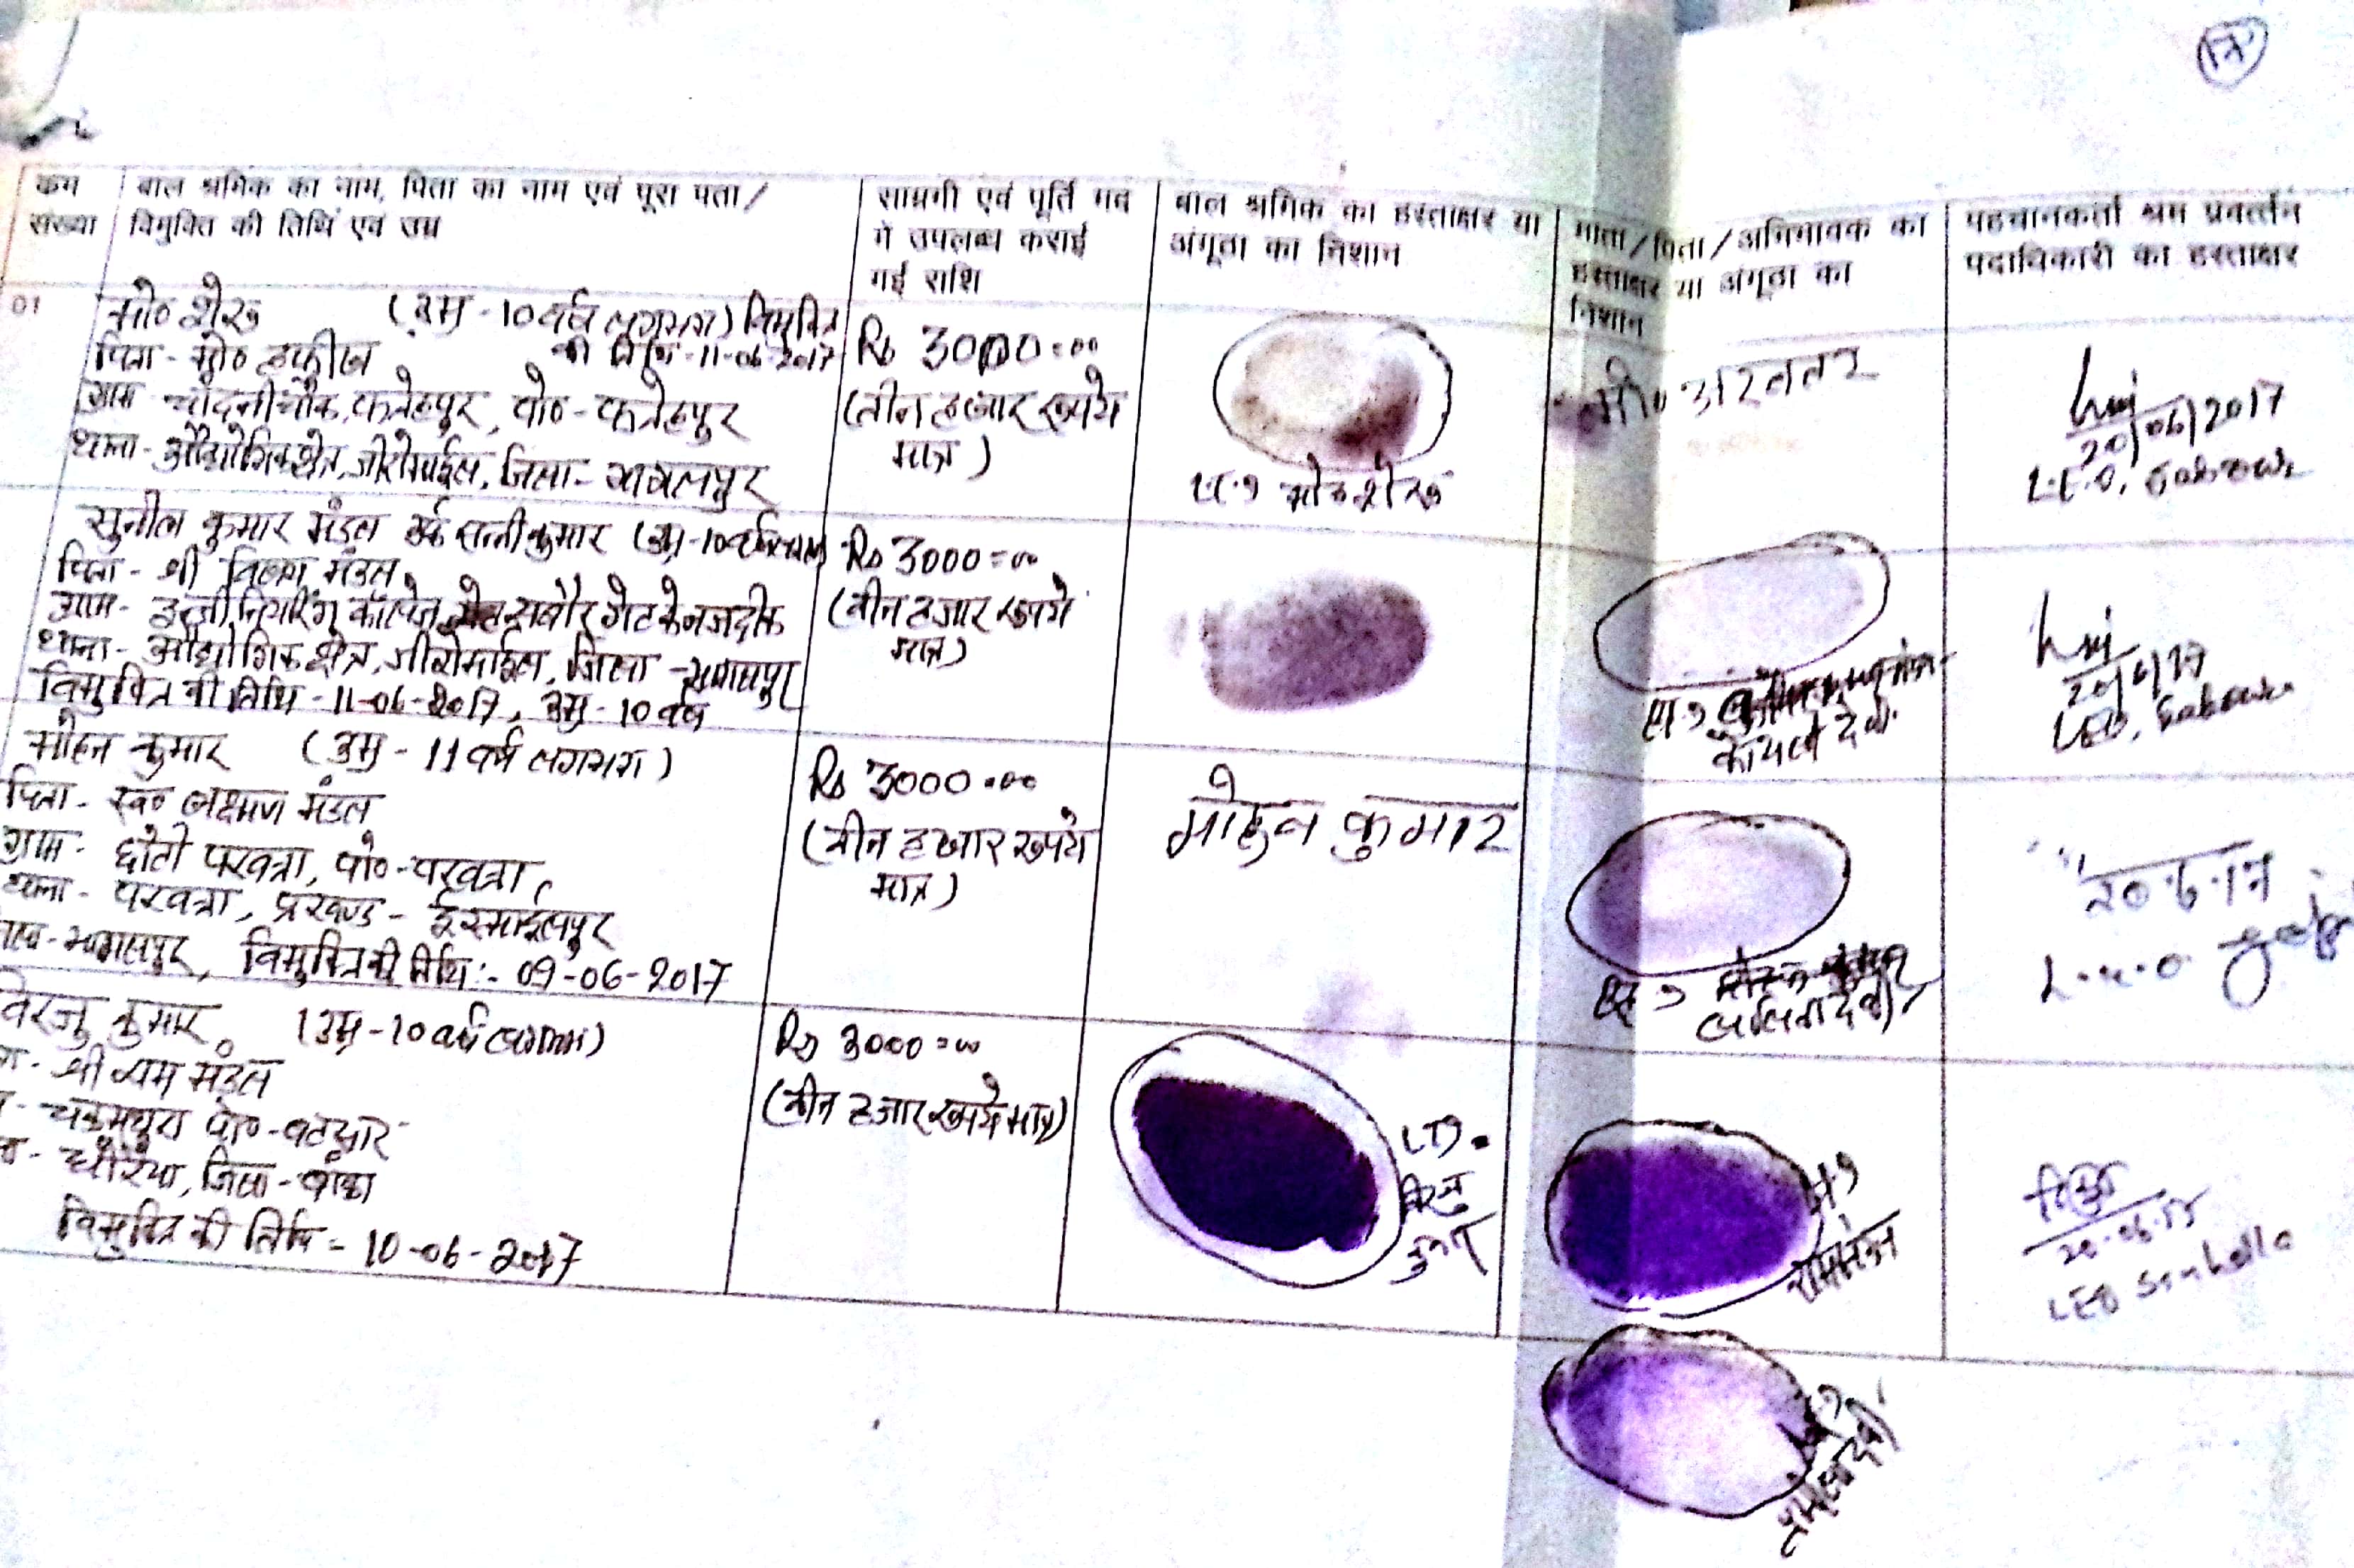 क्रम संख्या
बाल श्रमिक का नाम, पिता का नाम एवं पूरा पता/
विमुक्ति की तिथि एवं उम्र
सामग्री एवं पूर्ति मद
में उपलब्ध कराई
गई राशि
बाल श्रमिक का हस्ताक्षर या
अंगूठा का निशान
माता/पिता/अभिभावक का
हस्ताक्षर या अंगूठा का
निशान
पहचानकर्ता श्रम प्रवर्त्तन
पदाधिकारी का हस्ताक्षर
01
मो० शेख (उम्र - 10 वर्ष लगभग) विमुक्ति
की तिथि - 11-06-2017
पिता - मो०
ग्राम - चाँदनी चौक, फतेहपुर, पो० - फतेहपुर
थाना - औद्योगिक क्षेत्र, जीरोमाईल, जिला - भागलपुर
Rs 3000=00
(तीन हजार रूपये
मात्र)
मो० शेख
मो० अख्तर
20/06/2017
L.E.O, Sabour
सुनील कुमार मंडल उर्फ सन्नी कुमार (उम्र - 10 वर्ष
पिता - श्री मंडल
ग्राम - इन्जीनियरिंग कॉलेज सबौर गेट के नजदीक
थाना - औद्योगिक क्षेत्र, जीरोमाईल, जिला - भागलपुर
विमुक्ति की तिथि - 11-06-2017, उम्र - 10 वर्ष
Rs 3000=00
(तीन हजार रूपये
मात्र)
कोयली देवी
20/6/17
LEO, Sabour
मोहन कुमार (उम्र - 11 वर्ष लगभग)
पिता - स्व० लक्ष्मण मंडल
ग्राम - छोटी परवत्ता, पो० - परवत्ता,
थाना - परवत्ता, प्रखण्ड - ईस्माईलपुर
भागलपुर, विमुक्ति की तिथि :- 09-06-2017
Rs 3000=00
(तीन हजार रूपये
मात्र)
मोहन कुमार
ललिता देवी
20.6.17
बिरजु कुमार (उम्र - 10 वर्ष लगभग)
श्री राम मंडल
पो० - बटसार
जिला - बांका
विमुक्ति की तिथि - 10-06-2017
Rs 3000=00
(तीन हजार रूपये मात्र)
बिरजु
कुमार
राम मंडल
LEO Sonhaula